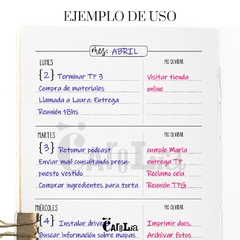 EJEMPLO DE USO
Mes: ABRIL
LUNES NO OLVIDAR
{2} Terminar TP 3 Visitar tienda
Compra de materiales online
Llamada a Laura: Entrega
Reunión 18hs
MARTES NO OLVIDAR
{3} Retomar podcast cumple María
Envie mail consultando presu- entrega TP
puesto vestido Reclamo cela
Comprar ingredientes para torta Reunión TPG
MIÉRCOLES NO OLVIDAR
{4} Instalar drivers Imprimir docs.
Buscar información sobre mapas Archivar fotos
CAtOLiA